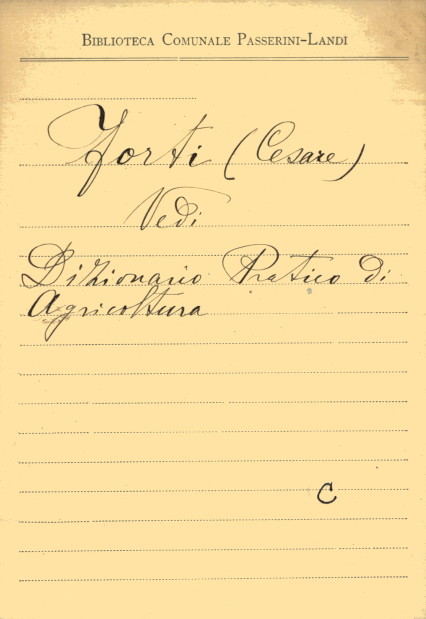 BIBLIOTECA COMUNALE PASSERINI-LANDI
Forti (Cesare)
Vedi
Dizionario Pratico di
Agricoltura
C